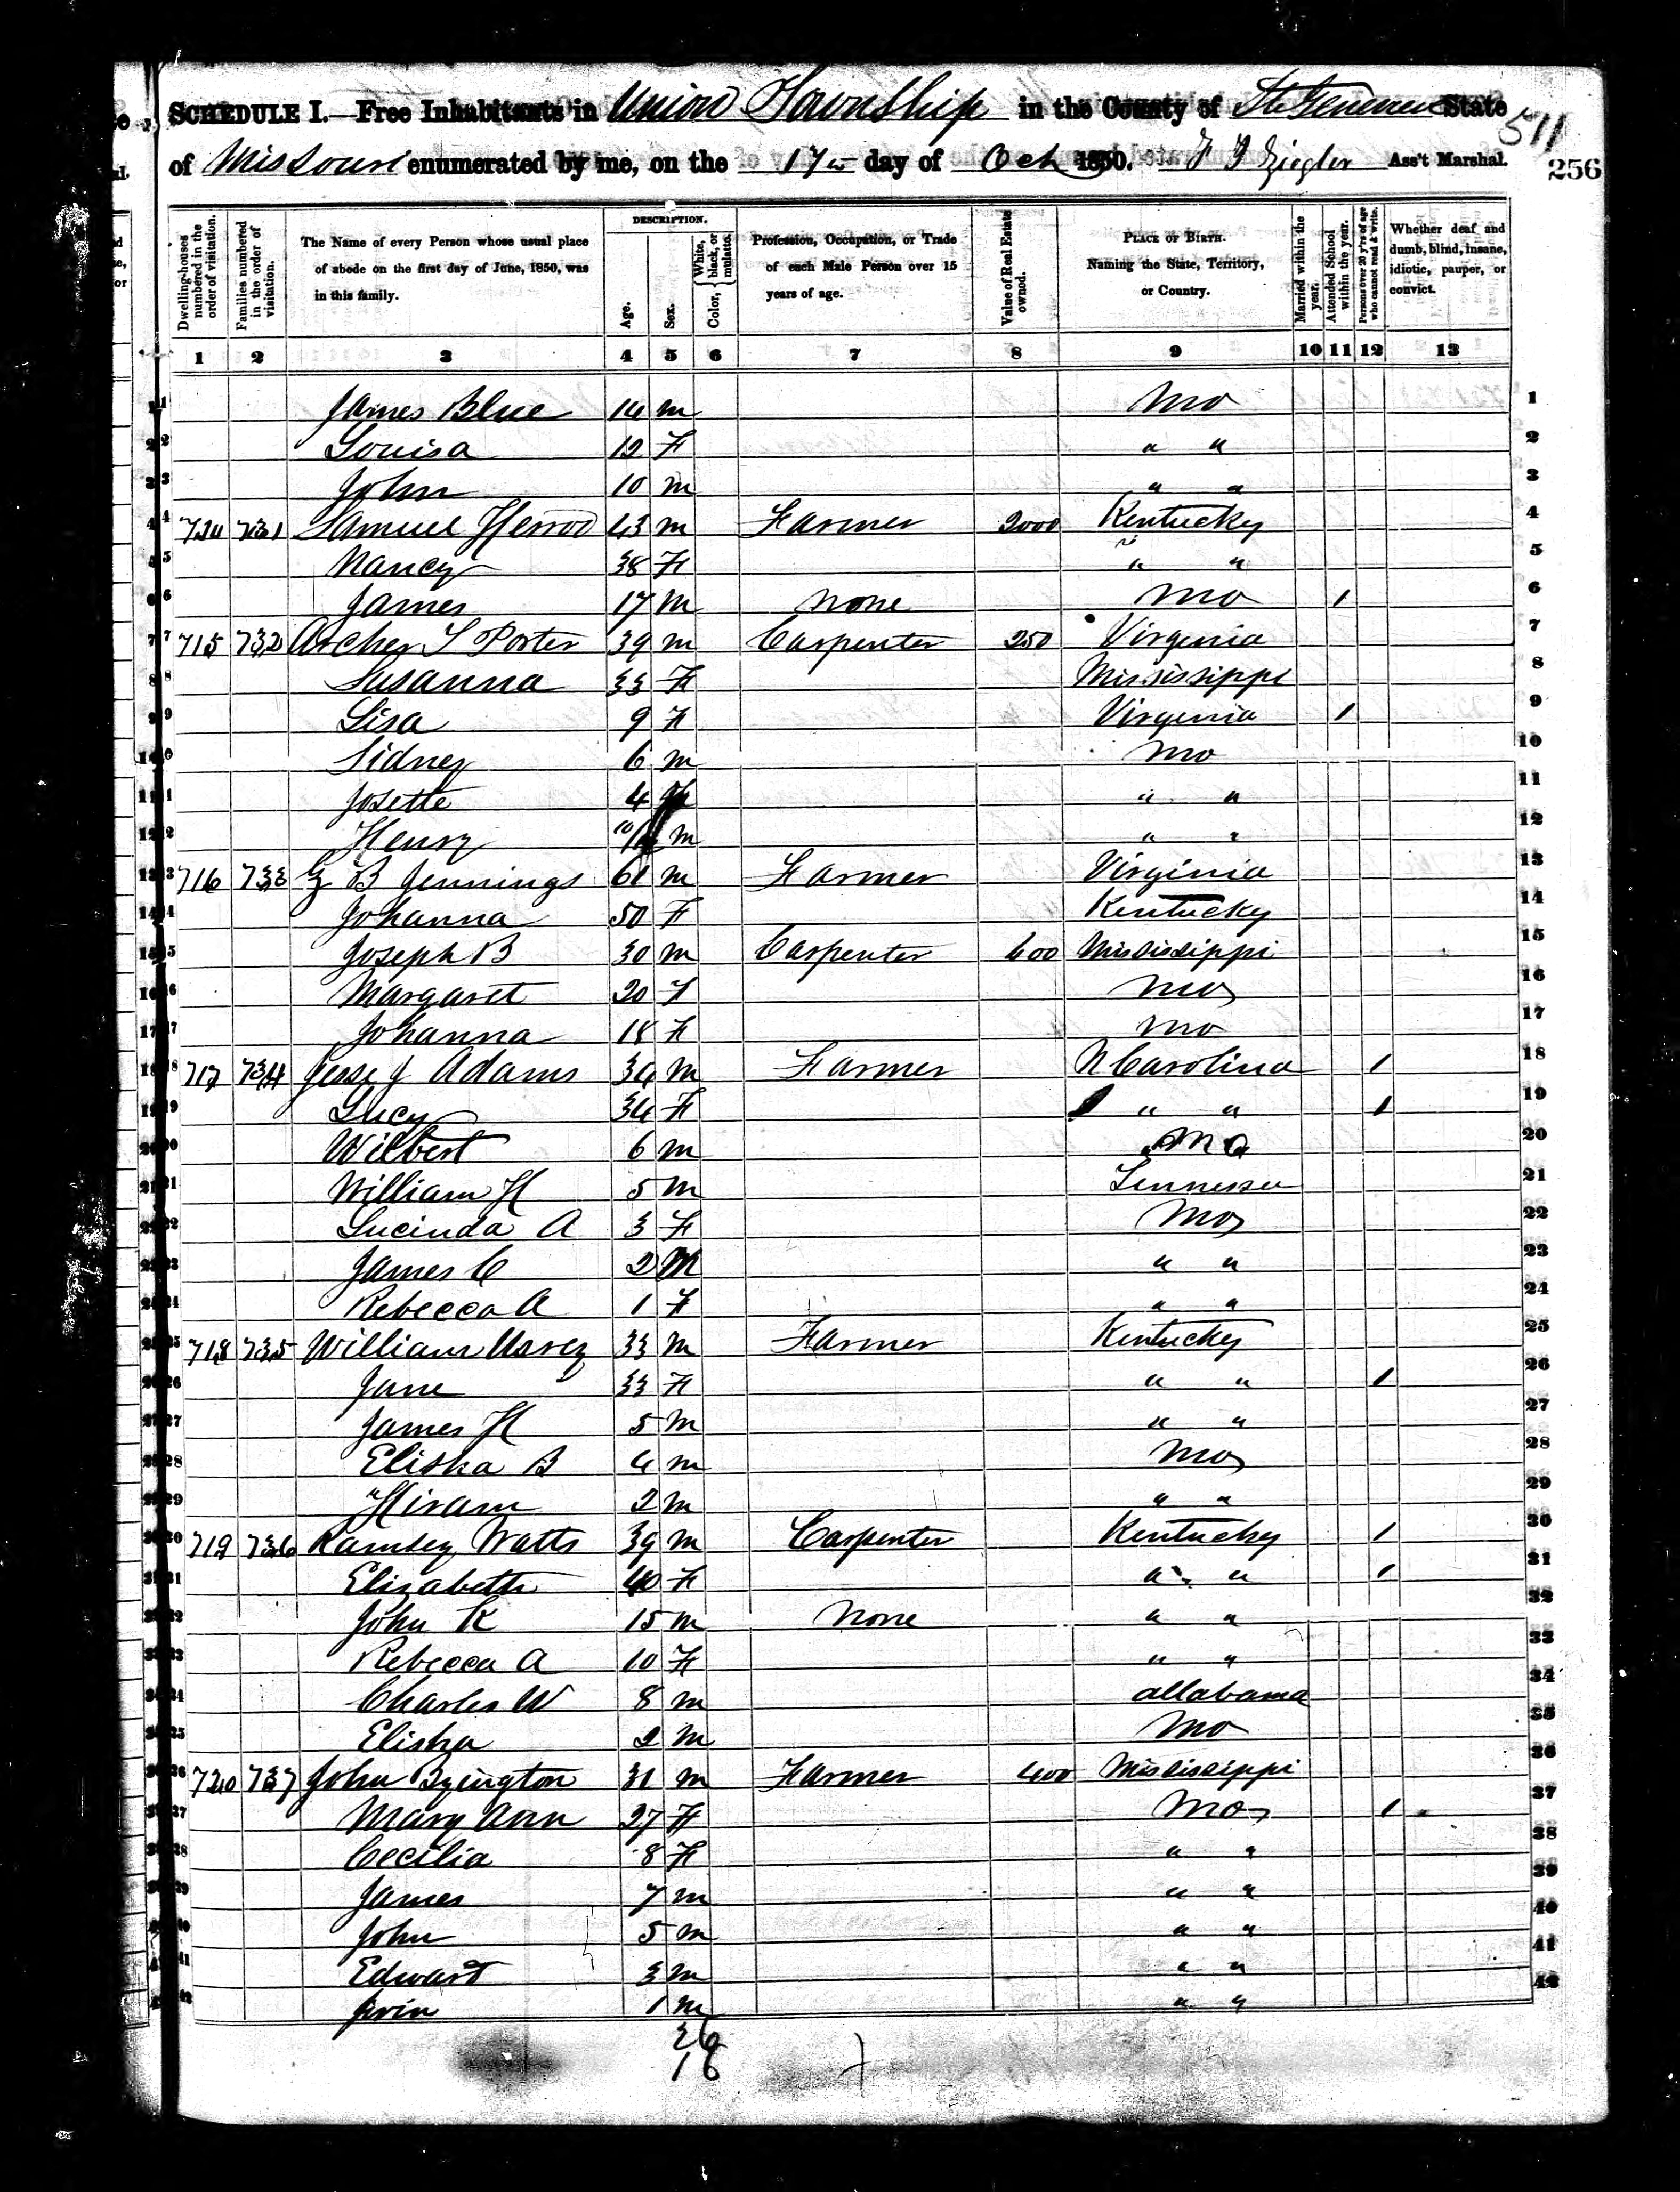 SCHEDULE I.—Free Inhabitants in Union Township in the County of Ste Genevieve State
of Missouri enumerated by me, on the 17th day of Oct 1850. F J Ziegler Ass't Marshal.
511
256
Dwelling-houses numbered in the order of visitation.
Families numbered in the order of visitation.
The Name of every Person whose usual place of abode on the first day of June, 1850, was in this family.
DESCRIPTION.
Age.
Sex.
Color, { White, black, or mulatto.
Profession, Occupation, or Trade of each Male Person over 15 years of age.
Value of Real Estate owned.
PLACE OF BIRTH. Naming the State, Territory, or Country.
Married within the year.
Attended School within the year.
Persons over 20 y'rs of age who cannot read & write.
Whether deaf and dumb, blind, insane, idiotic, pauper, or convict.
1 2 3 4 5 6 7 8 9 10 11 12 13
1 James Blue 14 m Mo 1
2 Louisa 12 F " " 2
3 John 10 m " " 3
4 714 731 Samuel Herrod 43 m Farmer 2000 Kentucky 4
5 Nancy 38 F " " 5
6 James 17 m None Mo / 6
7 715 732 Archer S Porter 39 m Carpenter 250 Virginia 7
8 Susanna 33 F Mississippi 8
9 Lisa 9 F Virginia / 9
10 Sidney 6 m Mo 10
11 Josette 4 " " 11
12 Henry 10/12 m " " 12
13 716 733 G B Jennings 61 m Farmer Virginia 13
14 Johanna 50 F Kentucky 14
15 Joseph B 30 m Carpenter 600 Mississippi 15
16 Margaret 20 F Mo 16
17 Johanna 18 F Mo 17
18 717 734 Jesse J Adams 34 m Farmer N Carolina / 18
19 Lucy 34 F " " / 19
20 Wilbert 6 m Mo 20
21 William H 5 m Tennessee 21
22 Lucinda A 3 F Mo 22
23 James C 2 M " " 23
24 Rebecca A 1 F " " 24
25 718 735 William Usrey 33 m Farmer Kentucky 25
26 Jane 33 F " " / 26
27 James H 5 m " " 27
28 Elisha B 4 m Mo 28
29 Hiram 2 m " " 29
30 719 736 Ramsey Watts 39 m Carpenter Kentucky / 30
31 Elizabeth 40 F " " / 31
32 John R 15 m None " " 32
33 Rebecca A 10 F " " 33
34 Charles W 8 m allabama 34
35 Elisha 2 m Mo 35
36 720 737 John Byington 31 m Farmer 400 Mississippi 36
37 Mary Ann 27 F Mo / 37
38 Cecilia 8 F " " 38
39 James 7 m " " 39
40 John 5 m " " 40
41 Edward 3 m " " 41
42 Irvin 1 m " " 42
26
18